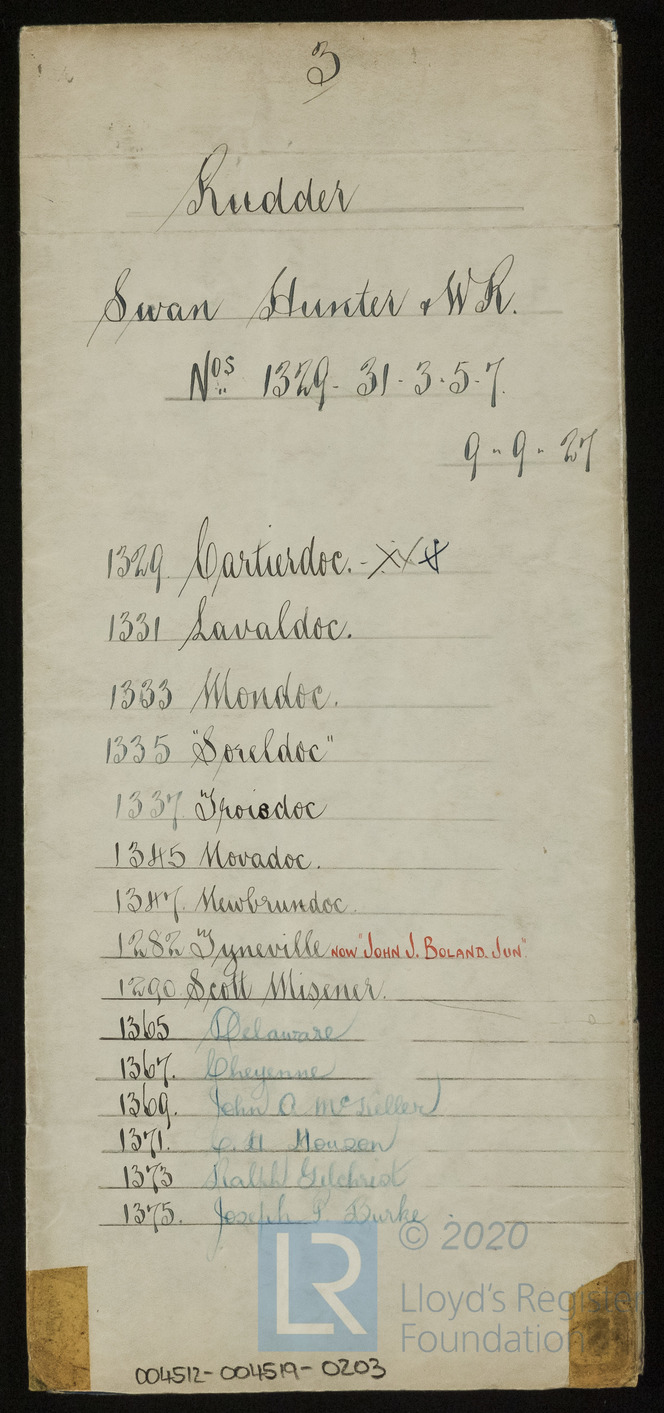 3
Rudder
Swan Hunter & W R.
Nos 1329 - 31 - 3 - 5 - 7.
9 - 9 - 27
1329. Cartierdoc. -
1331 Lavaldoc.
1333 Mondoc.
1335 "Soreldoc"
1337. Troisdoc
1345 Novadoc.
1347. Newbrundoc.
1282 Tyneville NOW "JOHN J. BOLAND. JUN"
1290 Scott Misener.
1365 Delaware
1367. Cheyenne
1369. John A McKeller
1371. C. H Houson
1373 Ralph Gilchrist
1375. Joseph P. Burke
© 2020
LR
Lloyd's Register
Foundation
004512-004519-0203